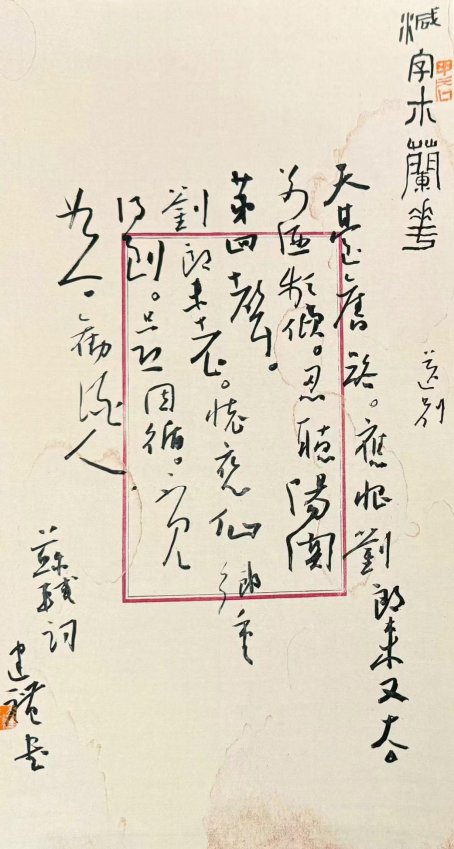 減字木蘭花
送別
天臺舊路。應恨劉郎來又去。
別酒頻傾。忍聽陽關
第四聲。
劉郎未老。懷戀仙鄉重
得到。只恐因循。不見
如今。勸酒人
蘇軾詞
建禮書